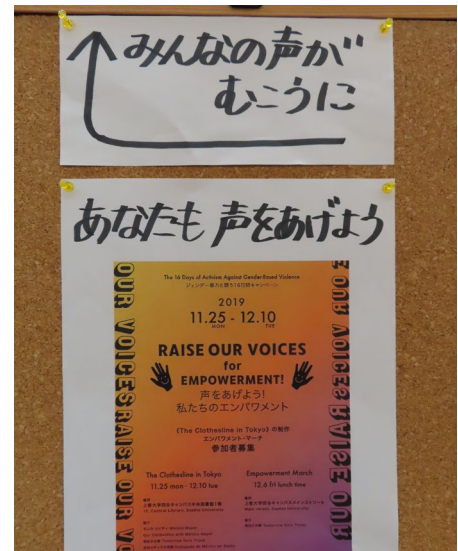 みんなの声が
むこうに
あなたも 声をあげよう
The 16 Days of Activism Against Gender-Based Violence
ジェンダー暴力に闘う16日間キャンペーン
2019
11.25 - 12.10
MON TUE
RAISE OUR VOICES
for
EMPOWERMENT!
声をあげよう!
私たちのエンパワメント
《The Clothesline in Tokyo》の制作
エンパワメント・マーチ
参加者募集
The Clothesline in Tokyo
11.25 mon - 12.10 tue
Empowerment March
12.6 fri lunch time
OUR VOICES RAISE OUR
OUR VOICES RAISE OUR